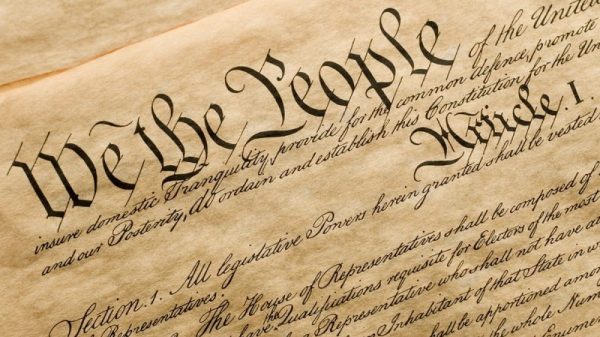 We the People of the United
insure domestic Tranquility, provide for the common defence, promote
and our Posterity, do ordain and establish this Constitution for the Un
Article. I.
Section. 1. All legislative Powers herein granted shall be vested
Representatives.
The House of Representatives shall be composed of
have the Qualifications requisite for Electors of the most
a Representative who shall not have
Inhabitant of that State in
shall be apportioned
the whole Num